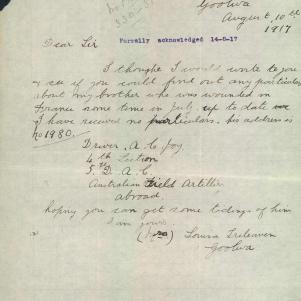 Goolwa
August 10th
1917
Formally acknowledged 14-8-17
Dear Sir
I thought I would write to you
& see if you could find out any particulars
about my brother who was wounded in
France some time in July up to date
I have received no particulars. his address is
no 1980.
Driver. A. C. Joy
4th Section
5. D. A. C.
Australian Field Artillery
abroad
hoping you can get some tidings of him
I am yours
Louisa Treleaven
Goolwa